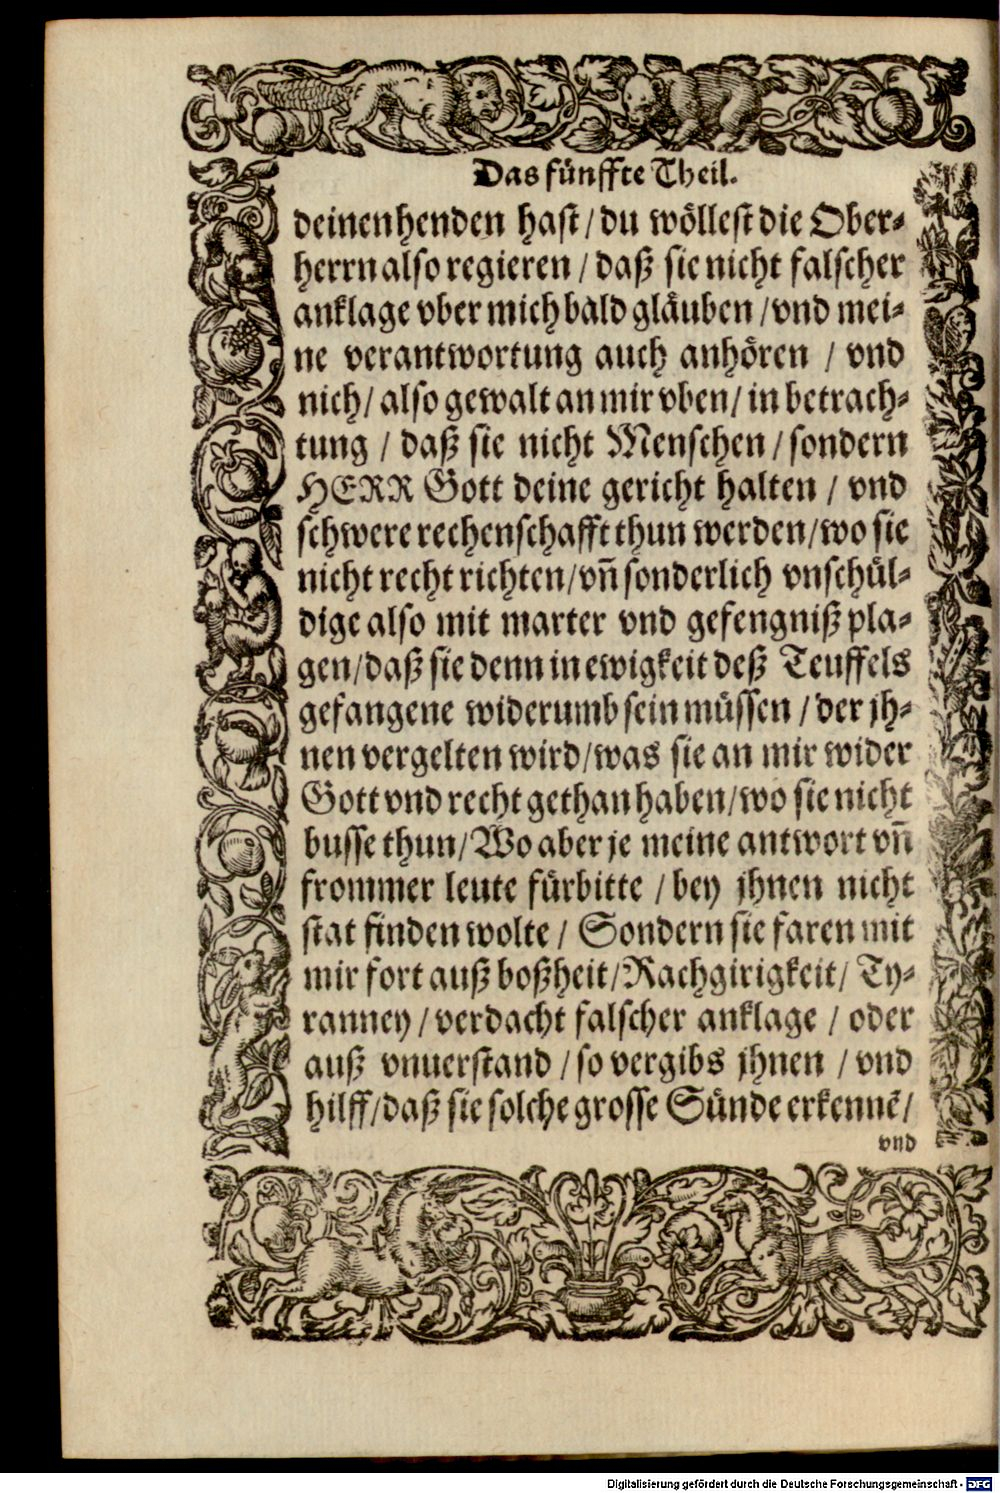 Das fünffte Theil.
deinen henden hast / du wöllest die Ober-
herrn also regieren / daß sie nicht falscher
anklage vber mich bald gläuben / vnd mei-
ne verantwortung auch anhören / vnd
nich / also gewalt an mir vben / in betrach-
tung / daß sie nicht Menschen / sondern
HERR Gott deine gericht halten / vnd
schwere rechenschafft thun werden / wo sie
nicht recht richten / vñ sonderlich vnschül-
dige also mit marter vnd gefengniß pla-
gen / daß sie denn in ewigkeit deß Teuffels
gefangene widerumb sein müssen / der jh-
nen vergelten wird / was sie an mir wider
Gott vnd recht gethan haben / wo sie nicht
busse thun / Wo aber je meine antwort vñ
frommer leute fürbitte / bey jhnen nicht
stat finden wolte / Sondern sie faren mit
mir fort auß boßheit / Rachgirigkeit / Ty-
ranney / verdacht falscher anklage / oder
auß vnuerstand / so vergibs jhnen / vnd
hilff / daß sie solche grosse Sünde erkennẽ /
vnd
Digitalisierung gefördert durch die Deutsche Forschungsgemeinschaft - DFG